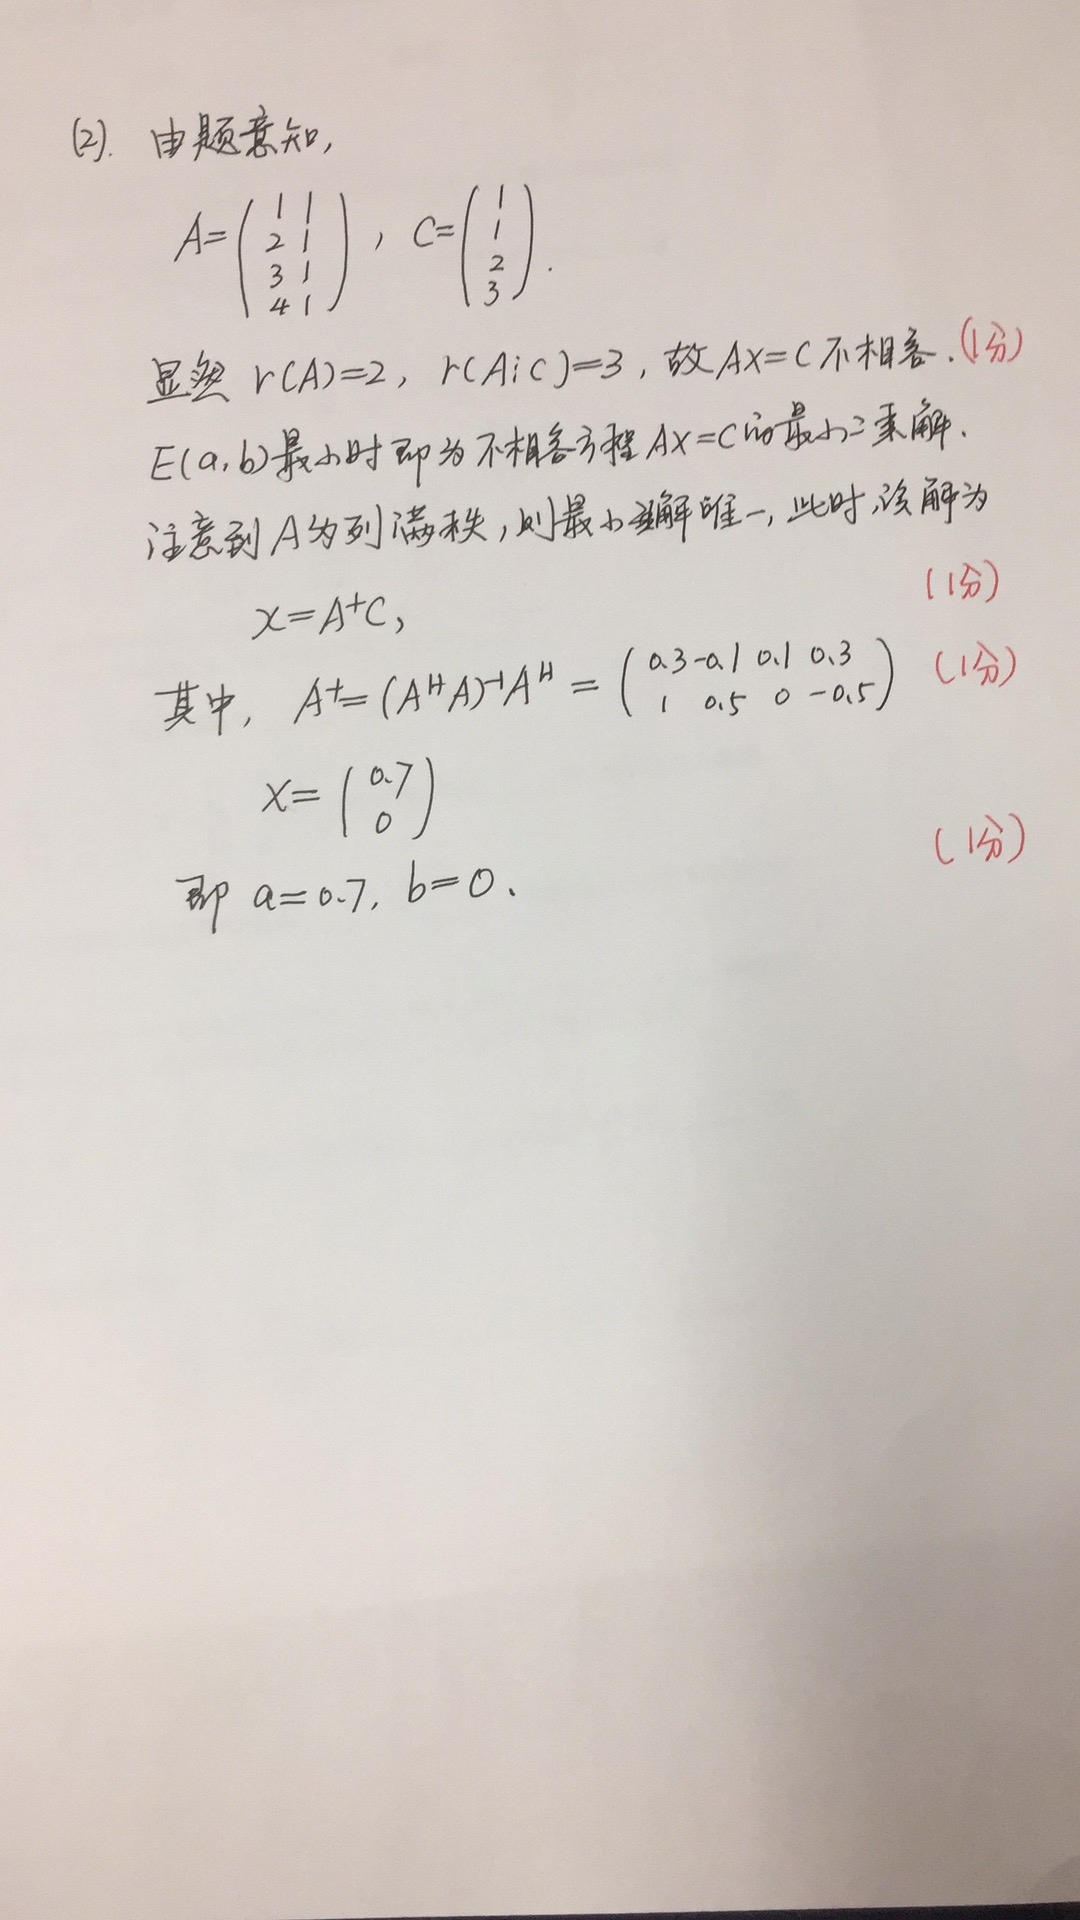 (2). 由题意知,
A=(1 1
2 1
3 1
4 1), C=(1
1
2
3).
显然 r(A)=2, r(A⋮C)=3, 故AX=C不相容. (1分)
E(a,b)最小时即为不相容方程AX=C的最小二乘解.
注意到A为列满秩,则最小解唯一,此时,该解为
x=A⁺C, (1分)
其中, A⁺=(AᴴA)⁻¹Aᴴ=(0.3 -0.1 0.1 0.3
1 0.5 0 -0.5) (1分)
X=(0.7
0)
(1分)
即 a=0.7, b=0.